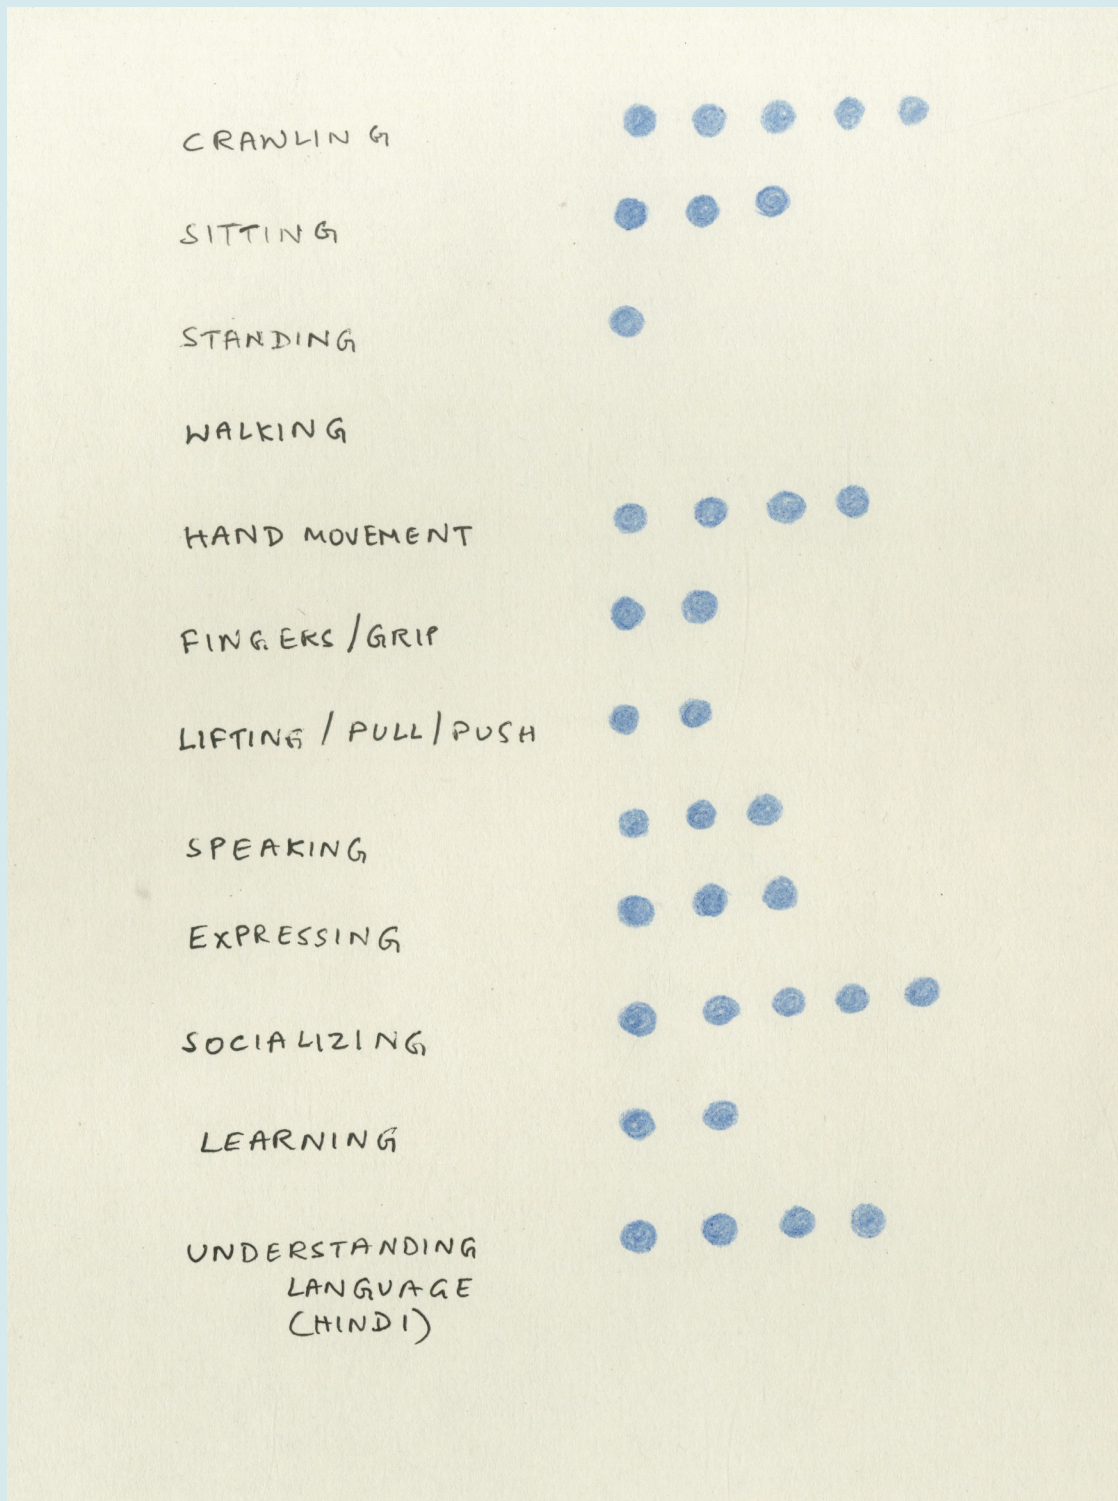 CRAWLING
SITTING
STANDING
WALKING
HAND MOVEMENT
FINGERS/GRIP
LIFTING / PULL/PUSH
SPEAKING
EXPRESSING
SOCIALIZING
LEARNING
UNDERSTANDING
LANGUAGE
(HINDI)